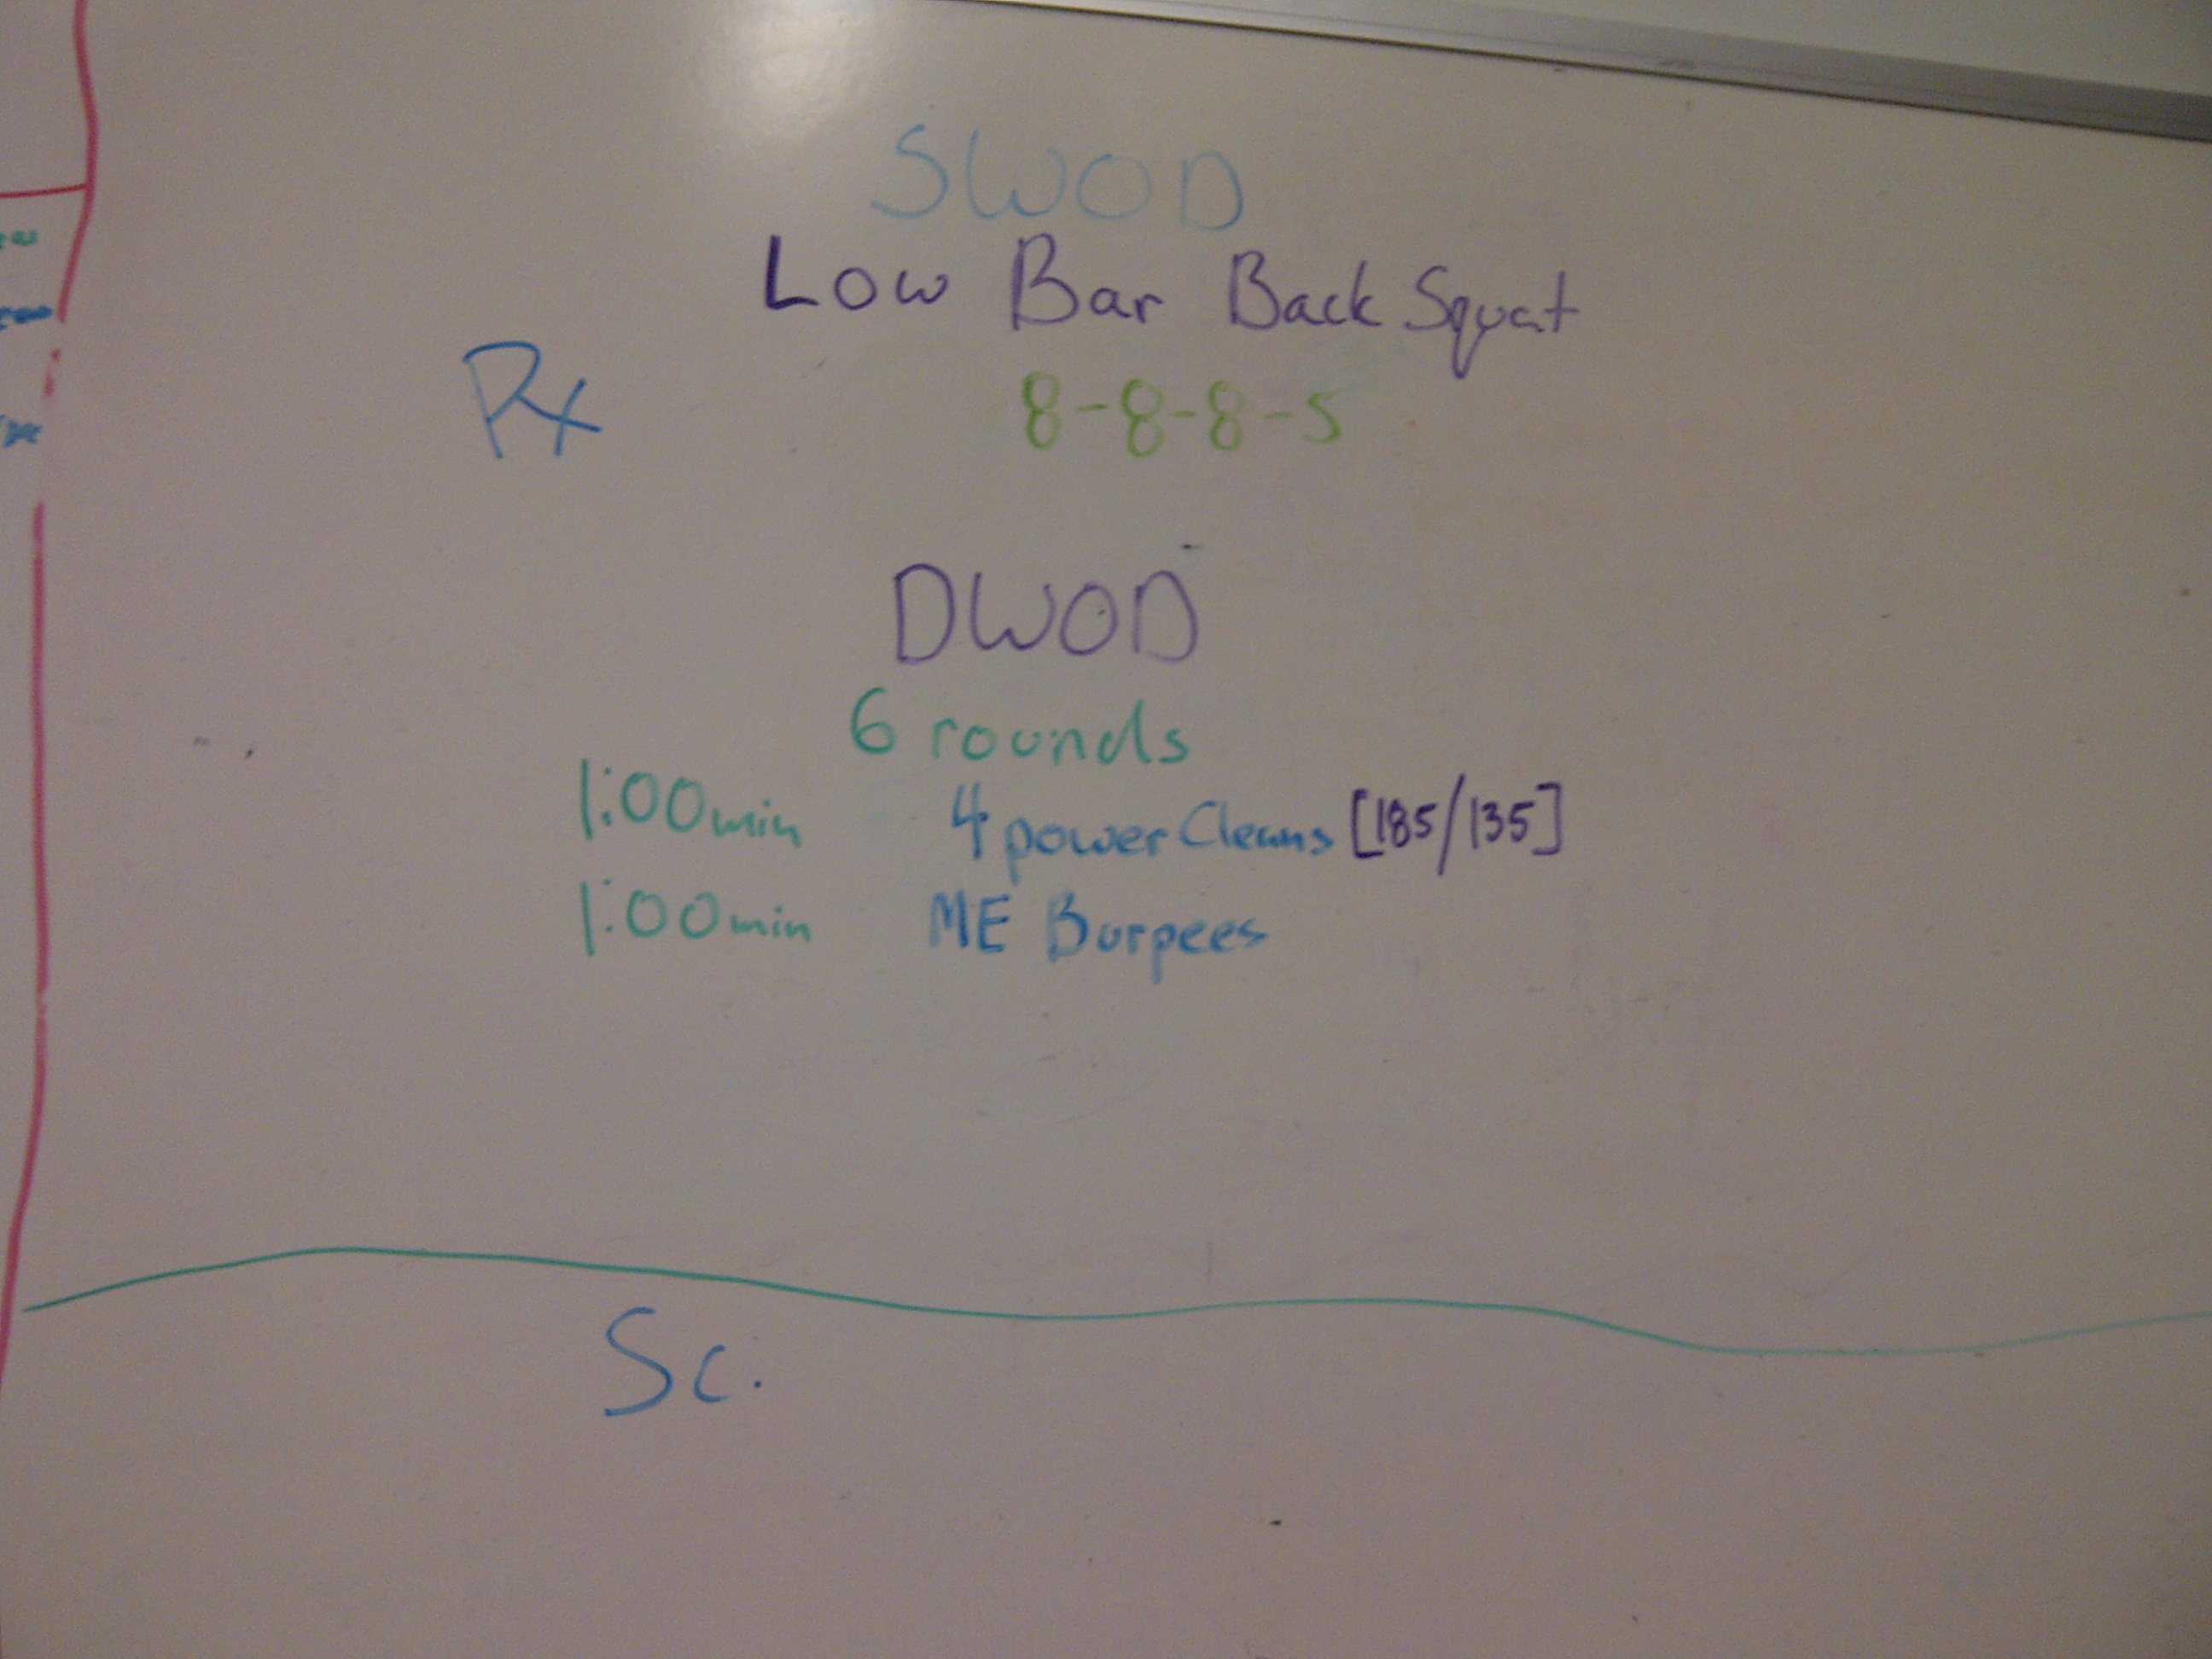 SWOD
Low Bar Back Squat
Rx 8-8-8-5
DWOD
6 rounds
1:00min 4 power Cleans [185/135]
1:00min ME Burpees
Sc.